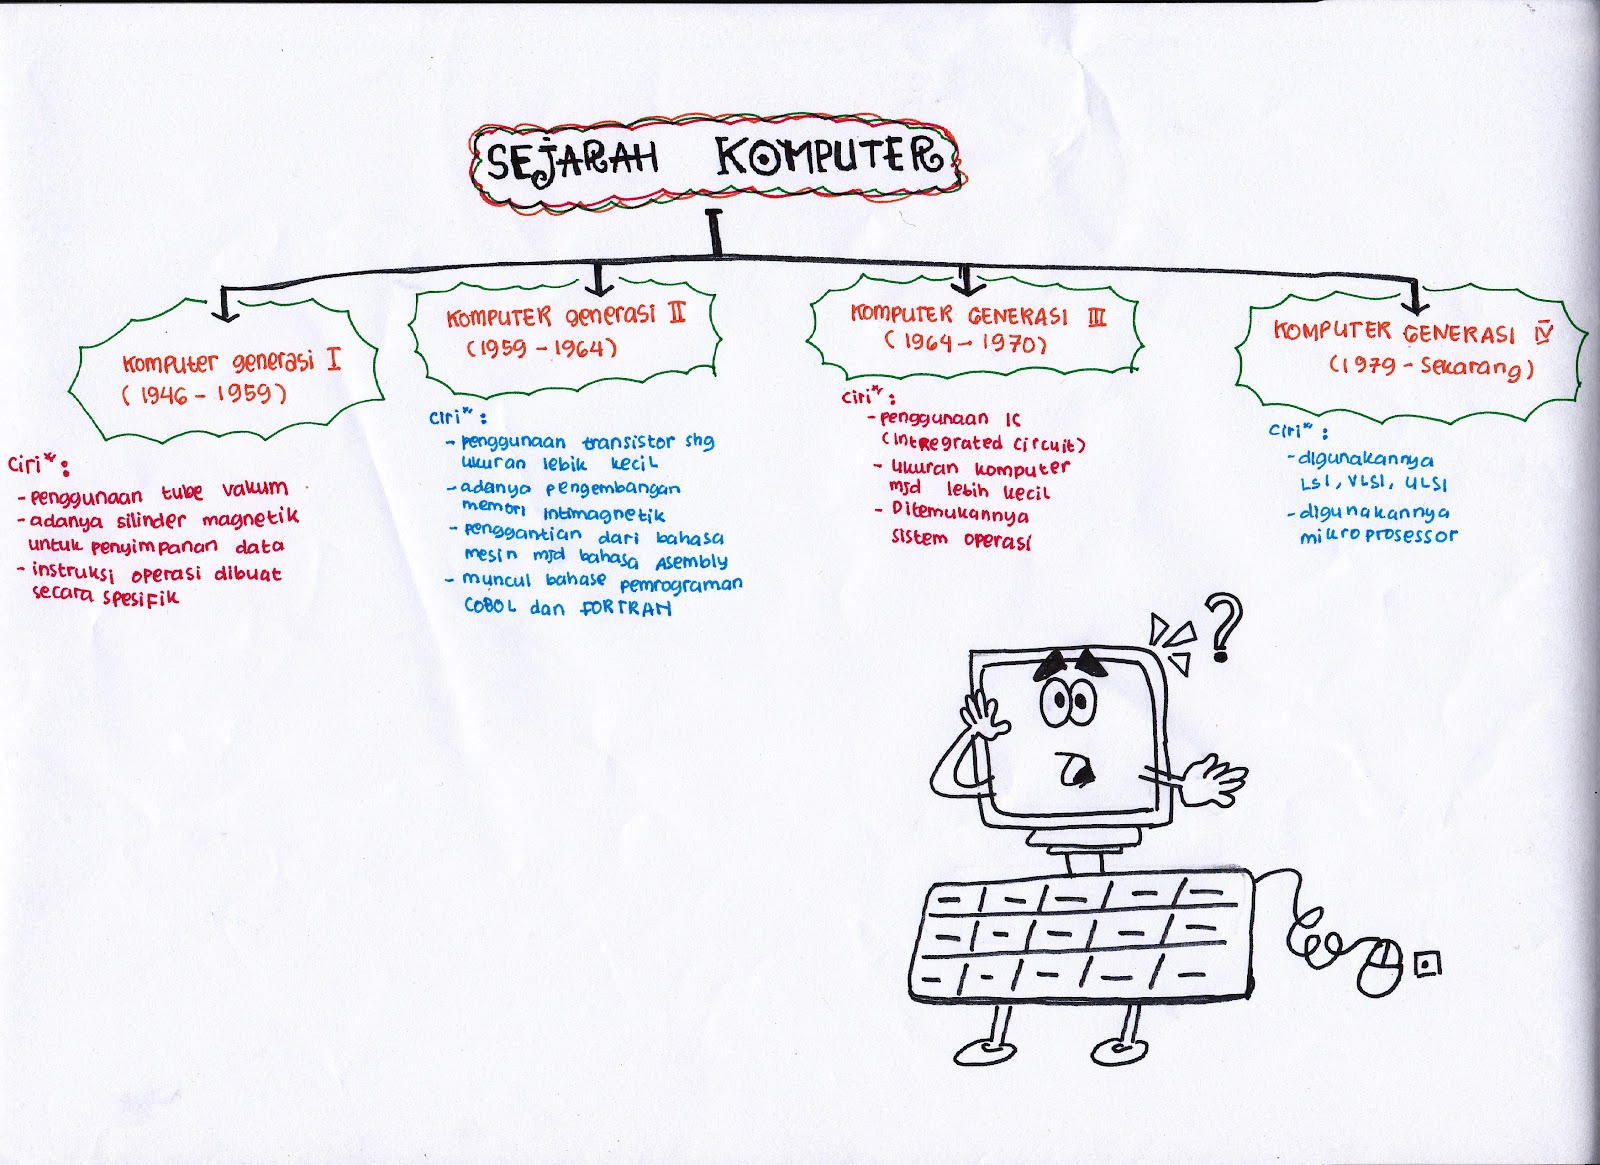 SEJARAH KOMPUTER
Komputer generasi I
(1946 - 1959)
Ciri" :
- penggunaan tube vakum
- adanya silinder magnetik
untuk penyimpanan data
- instruksi operasi dibuat
secara spesifik
KOMPUTER generasi II
(1959 - 1964)
Ciri" :
- penggunaan transistor shg
ukuran lebik kecil
- adanya pengembangan
memori intimagnetik
- penggantian dari bahasa
mesin mjd bahasa Asembly
- muncul bahase pemrograman
COBOL dan FORTRAN
KOMPUTER GENERASI III
(1964 - 1970)
Ciri" :
- penggunaan IC
(Intregrated Circuit)
- ukuran komputer
mjd lebih kecil
- Ditemukannya
sistem operasi
KOMPUTER GENERASI IV
(1979 - Sekarang)
Ciri" :
- digunakannya
LSI, VLSI, ULSI
- digunakannya
mikroprosessor
?